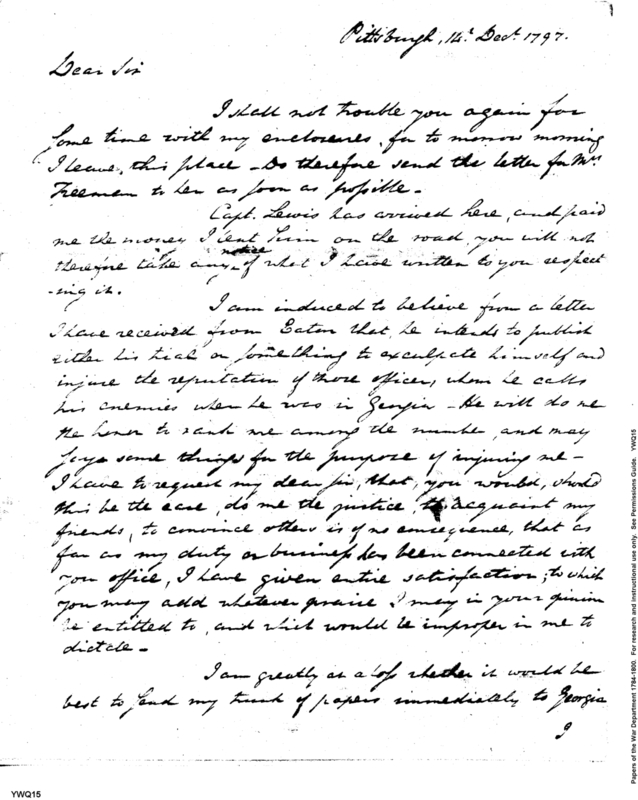 Pittsburgh, 14th Decr. 1797.
Dear Sir
I shall not trouble you again for
some time with my enclosures, for to morrow morning
I leave, this place - Do therefore send the letter for Mrs.
Freeman to her as soon as possible -
Capt. Lewis has arrived here, and paid
me the money I lent him on the road, you will not
notice
therefore take any of what I have written to you respect
-ing it.
I am induced to believe from a letter
I have received from Eaton that, he intends to publish
either his trial or something to exculpate himself and
injure the reputation of those officers, whom he calls
his enemies when he was in Georgia - He will do me
the honor to rank me among the number, and may
say some things for the purpose of injuring me -
I have to request my dear sir, that, you would, should
this be the case, do me the justice, to acquaint my
friends, to convince others is of no consequence, that as
far as my duty or business has been connected with
your office, I have given entire satisfaction; to which
you may add whatever praise I may in your opinion
be entitled to, and which would be improper in me to
dictate -
I am greatly at a loss whether it would be
best to send my trunk of papers immediately to Georgia
I
YWQ15
Papers of the War Department 1784-1800. For research and instructional use only. See Permissions Guide. YWQ15